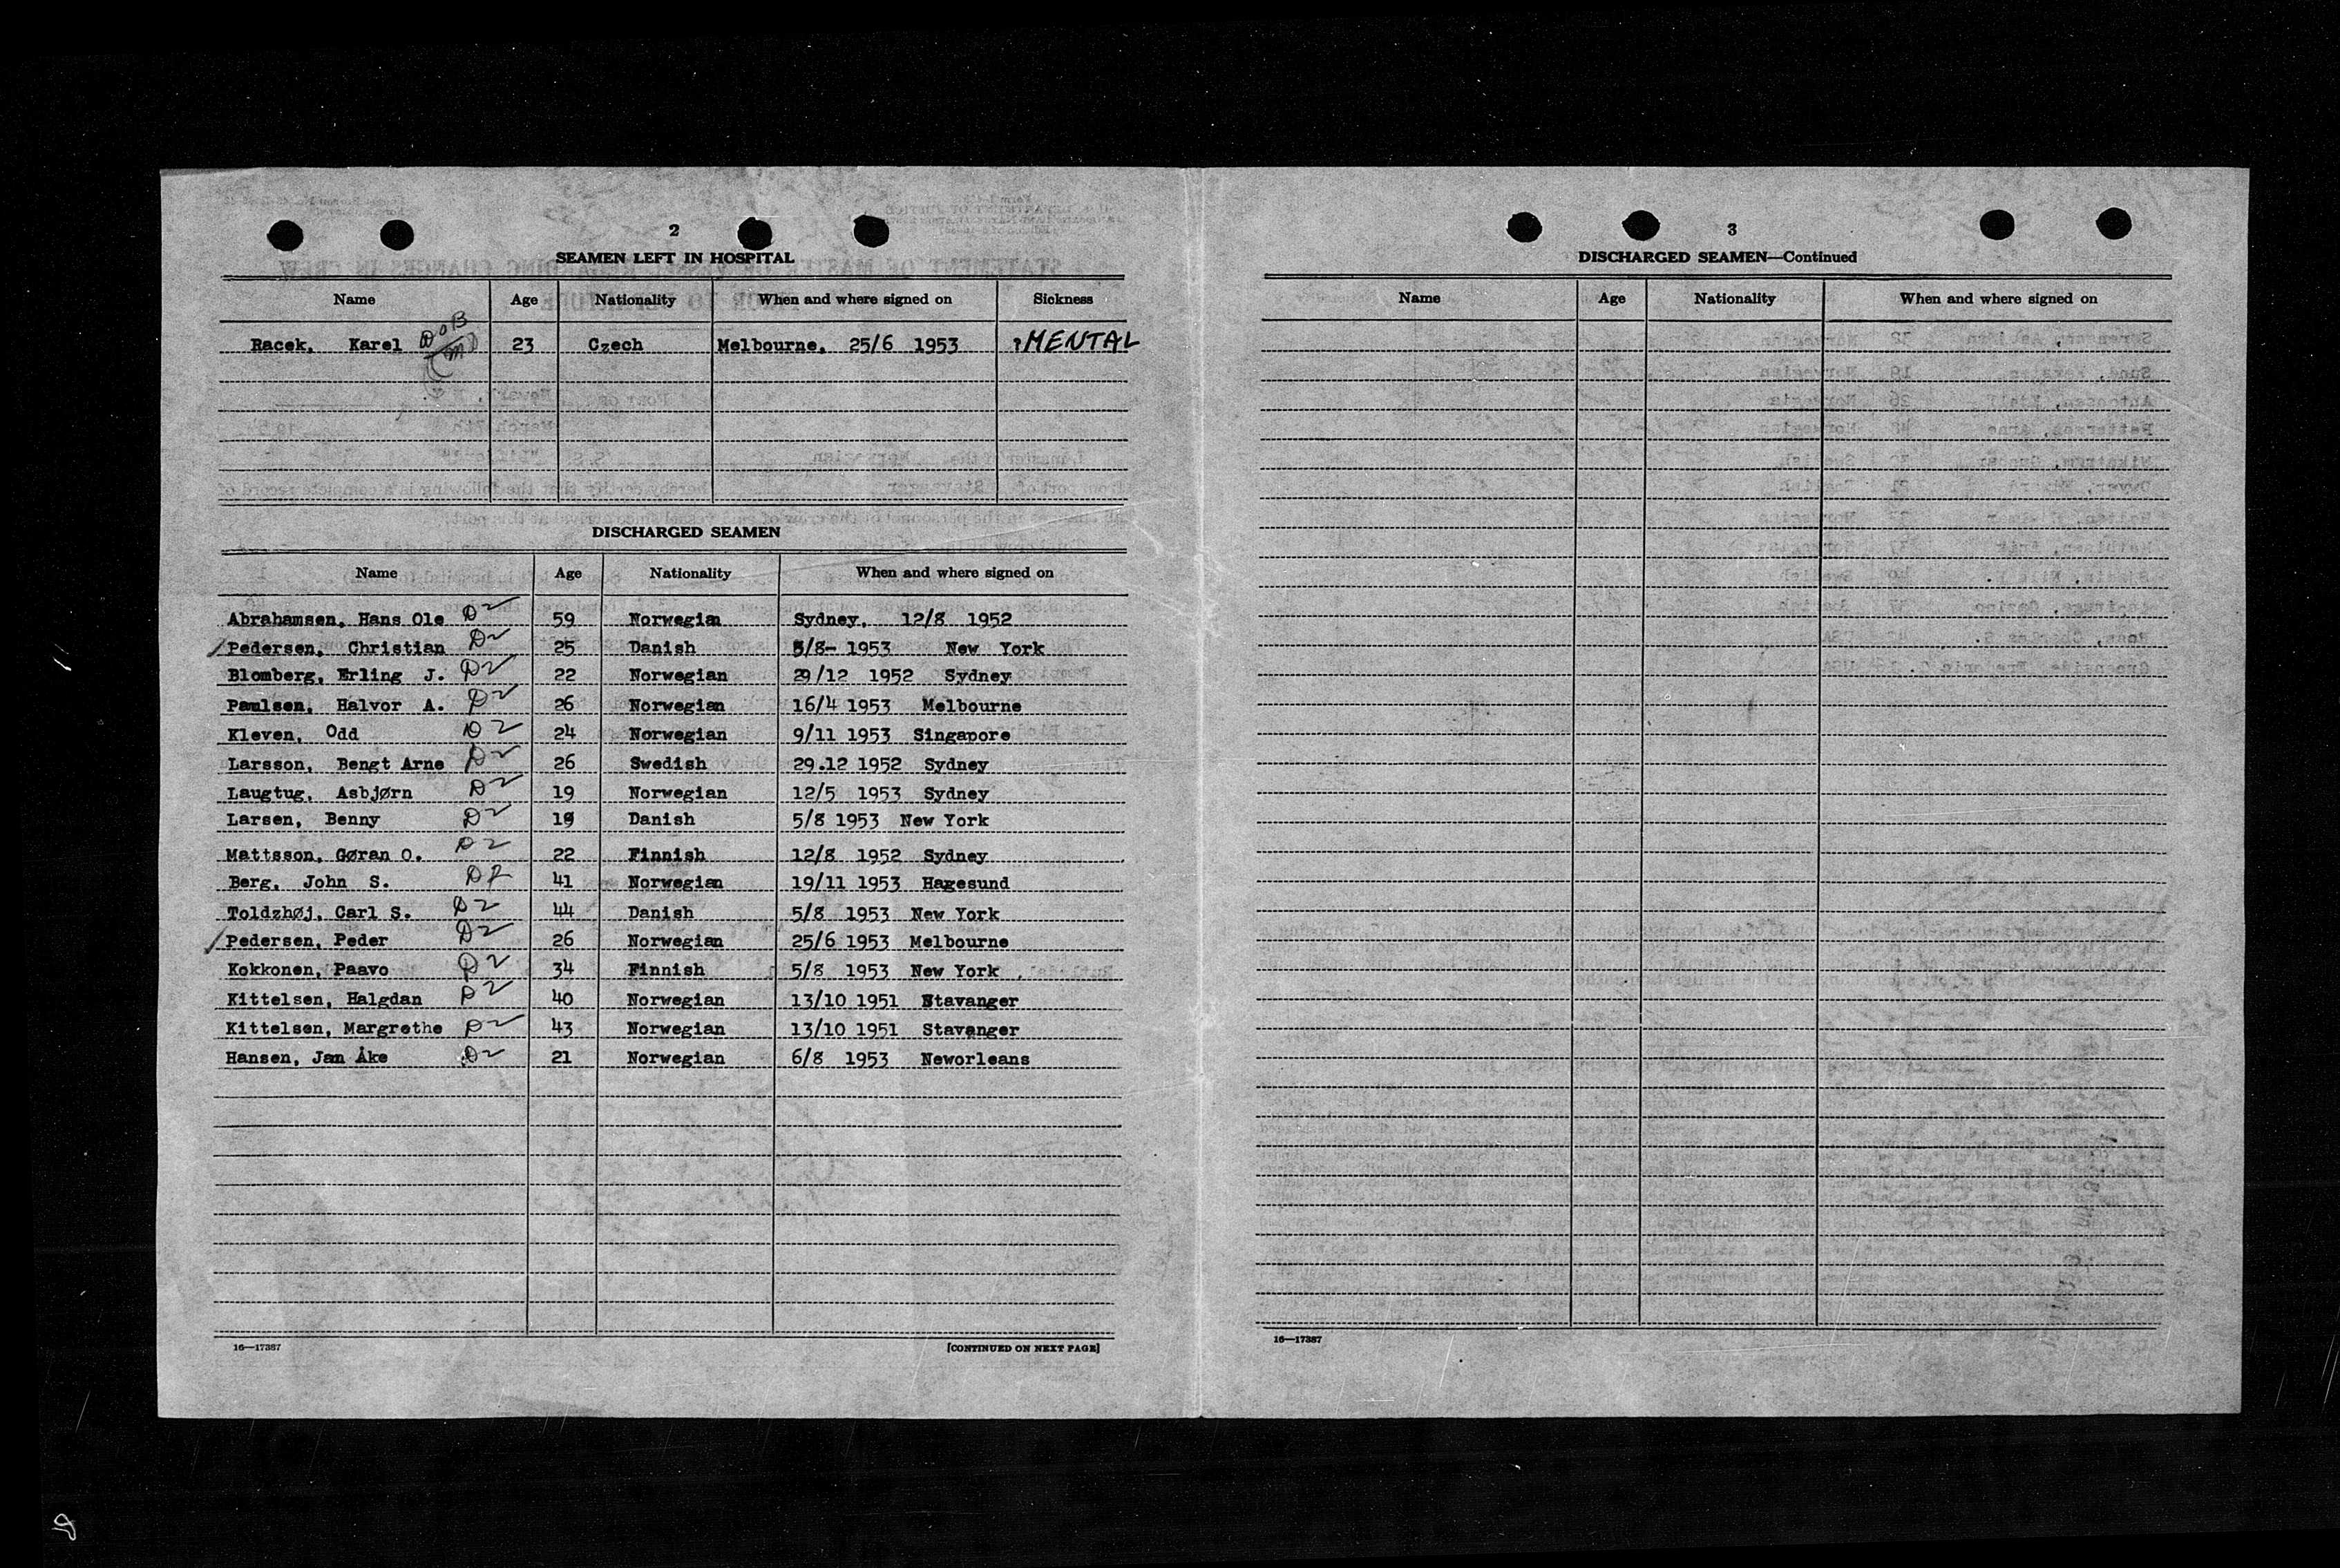 2
SEAMEN LEFT IN HOSPITAL
Name Age Nationality When and where signed on Sickness
Racek, Karel 23 Czech Melbourne, 25/6 1953 ?MENTAL
DISCHARGED SEAMEN
Name Age Nationality When and where signed on
Abrahamsen, Hans Ole D2 59 Norwegian Sydney, 12/8 1952
Pedersen, Christian D2 25 Danish 5/8- 1953 New York
Blomberg, Erling J. D2 22 Norwegian 29/12 1952 Sydney
Paulsen, Halvor A. D2 26 Norwegian 16/4 1953 Melbourne
Kleven, Odd D2 24 Norwegian 9/11 1953 Singapore
Larsson, Bengt Arne D2 26 Swedish 29.12 1952 Sydney
Laugtug, Asbjørn D2 19 Norwegian 12/5 1953 Sydney
Larsen, Benny D2 19 Danish 5/8 1953 New York
Mattsson, Gøran O. D2 22 Finnish 12/8 1952 Sydney
Berg, John S. D2 41 Norwegian 19/11 1953 Hagesund
Toldzhøj, Carl S. D2 44 Danish 5/8 1953 New York
Pedersen, Peder D2 26 Norwegian 25/6 1953 Melbourne
Kokkonen, Paavo D2 34 Finnish 5/8 1953 New York
Kittelsen, Halgdan D2 40 Norwegian 13/10 1951 Stavanger
Kittelsen, Margrethe D2 43 Norwegian 13/10 1951 Stavanger
Hansen, Jan Åke D2 21 Norwegian 6/8 1953 Neworleans
16—17387 [CONTINUED ON NEXT PAGE]
3
DISCHARGED SEAMEN—Continued
Name Age Nationality When and where signed on
16—17387